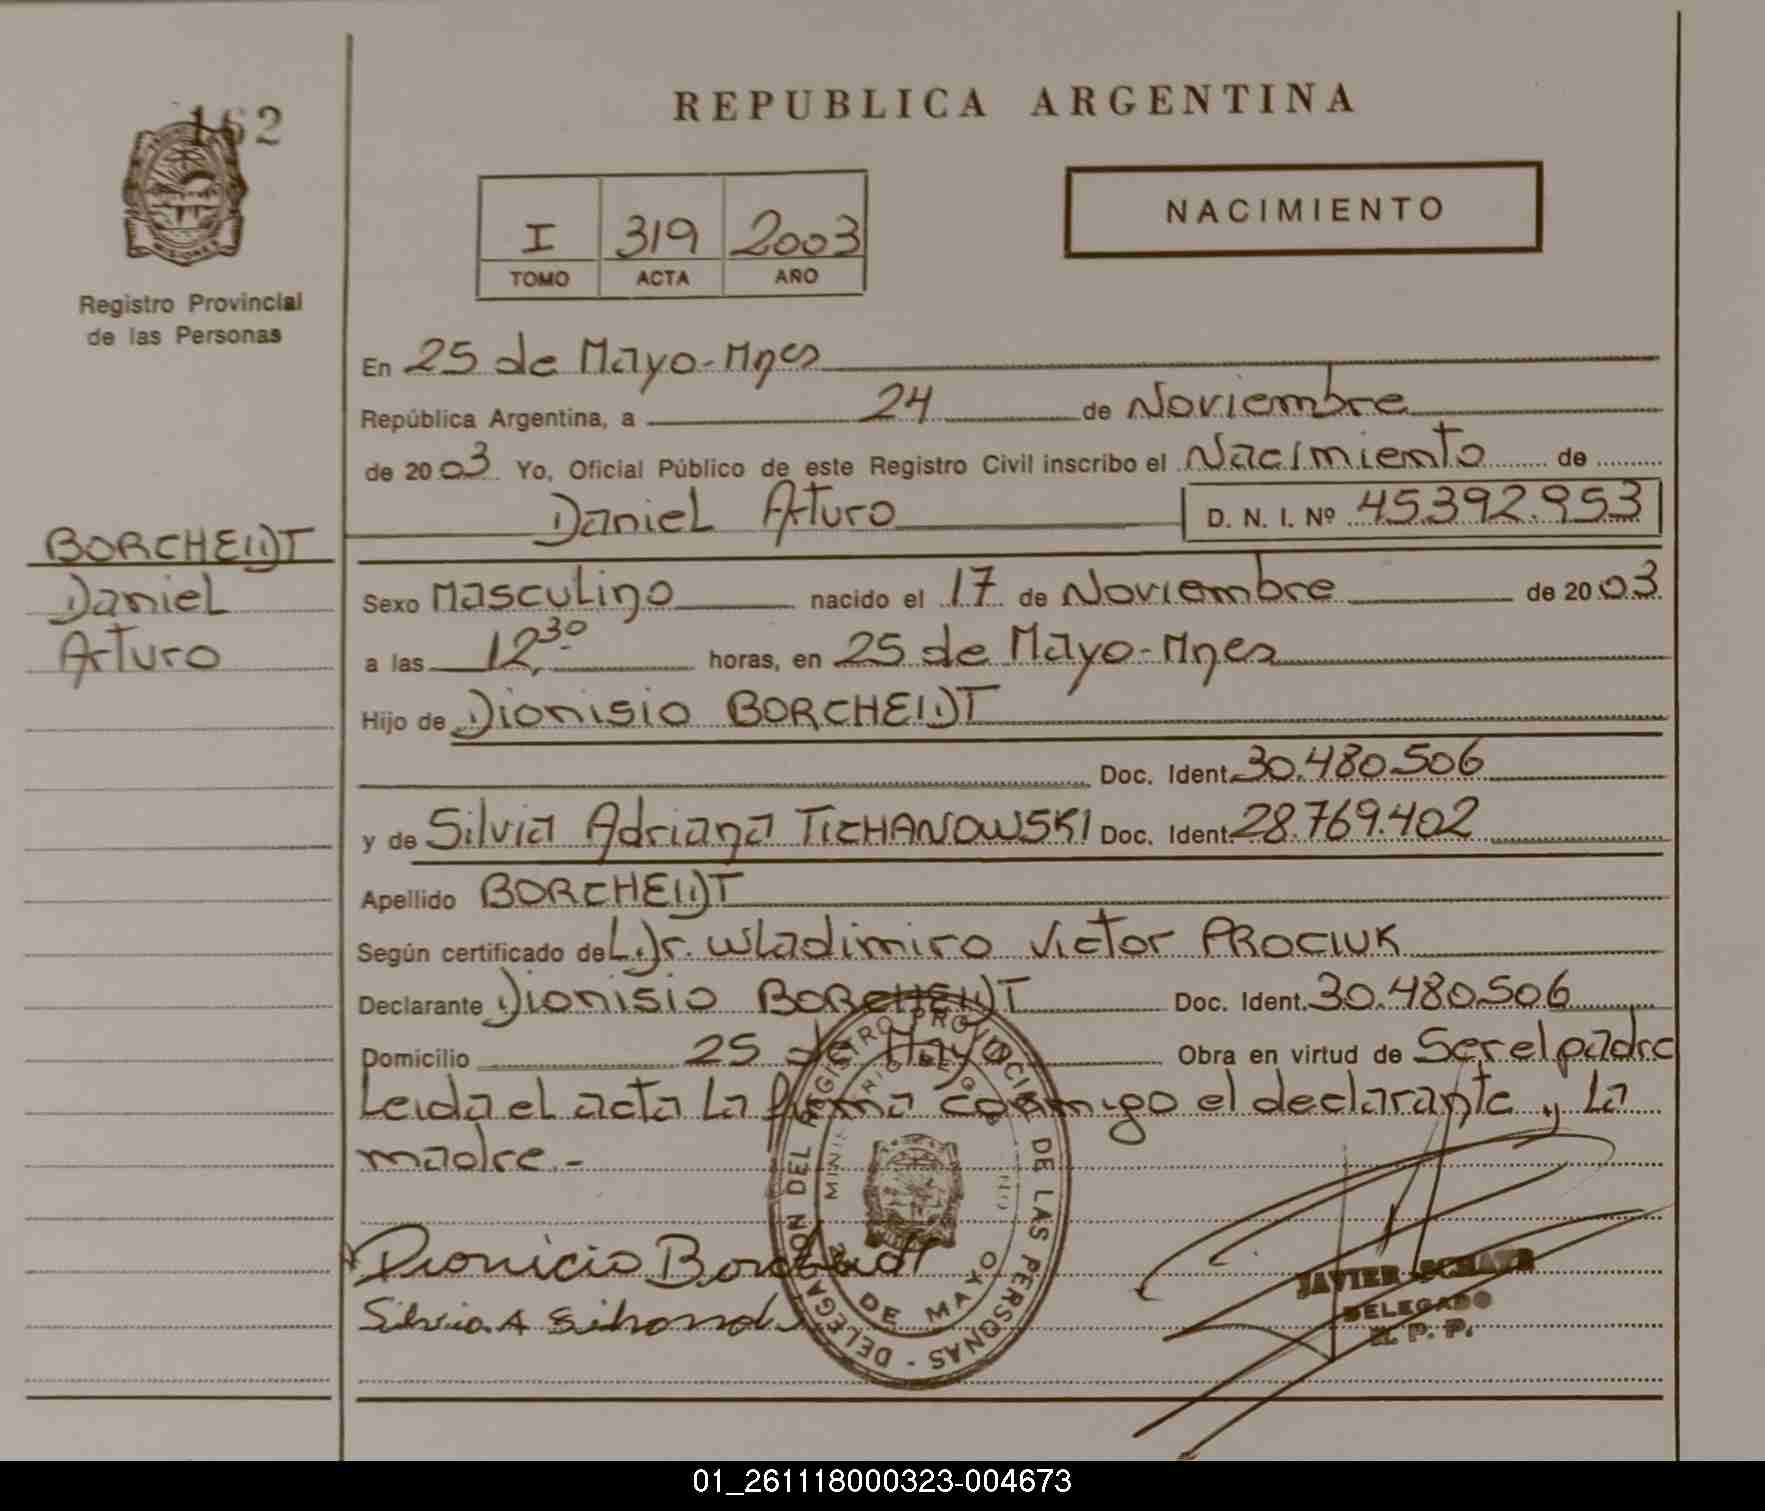 162
REPUBLICA ARGENTINA
NACIMIENTO
I 319 2003
TOMO ACTA AÑO
MISIONES
Registro Provincial
de las Personas
En 25 de Mayo-Mnes
República Argentina, a 24 de Noviembre
de 2003 Yo, Oficial Público de este Registro Civil inscribo el Nacimiento de
Daniel Arturo D. N. I. Nº 45.392.953
BORCHEIDT
Daniel
Arturo
Sexo Masculino nacido el 17 de Noviembre de 2003
a las 12,30 horas, en 25 de Mayo-Mnes
Hijo de Dionisio BORCHEIDT
Doc. Ident. 30.480.506
y de Silvia Adriana TICHANOWSKI Doc. Ident. 28.769.402
Apellido BORCHEIDT
Según certificado del Dr. Wladimiro Victor PROCIUK
Declarante Dionisio BORCHEIDT Doc. Ident. 30.480.506
Domicilio 25 de Mayo Obra en virtud de Ser el padre
Leida el acta la firma conmigo el declarante y la
madre.-
Dionicio Borcheidt
Silvia A
DELEGACION DEL REGISTRO PROVINCIAL DE LAS PERSONAS -
DE MAYO
JAVIER
DELEGADO
R. P. P.
01_261118000323-004673